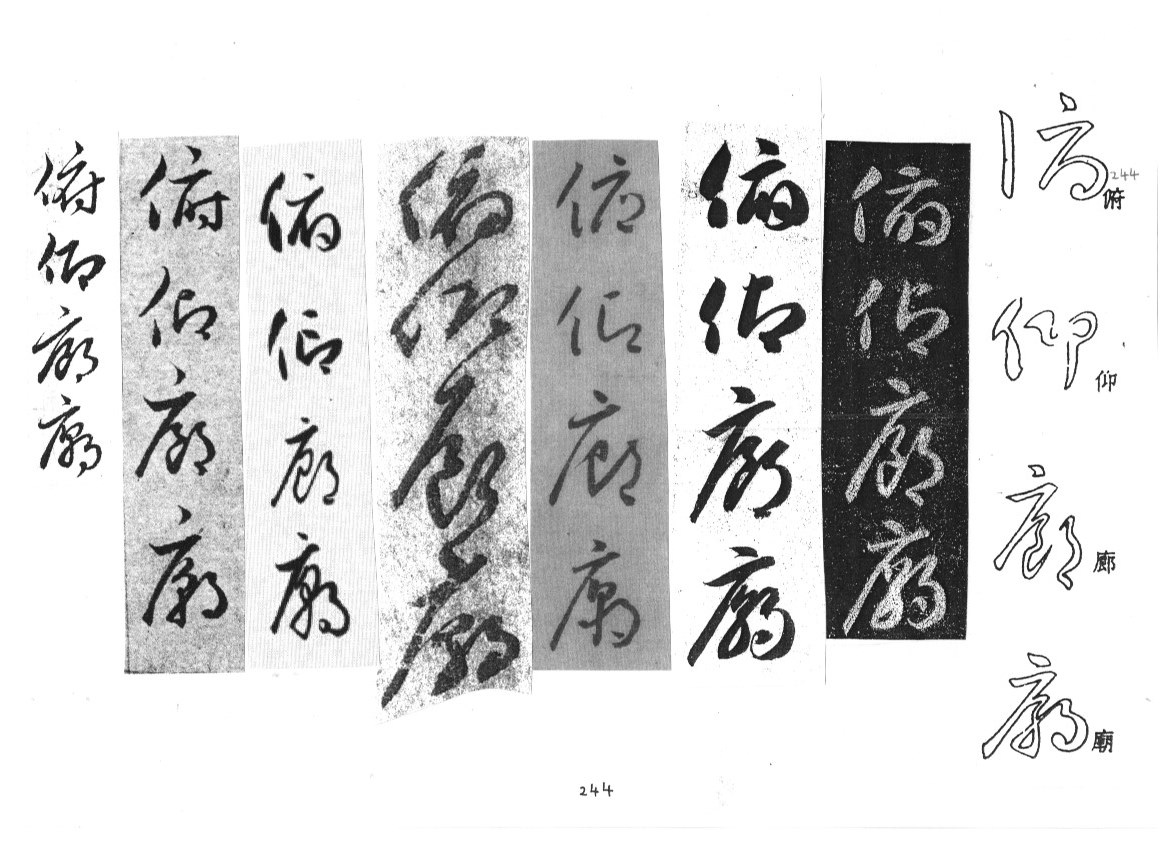 244
俯仰廊廟
俯仰廊廟
俯仰廊廟
俯仰廊廟
俯仰廊廟
俯仰廊廟
俯仰廊廟
俯仰廊廟
俯
仰
廊
廟
244